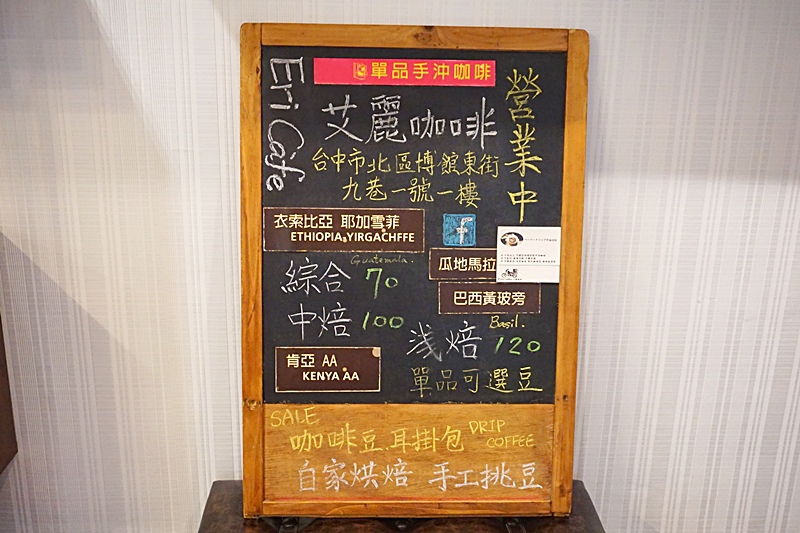 單品手沖咖啡
Eri Cafe
艾麗咖啡
營業中
台中市北區博館東街
九巷一號一樓
衣索比亞 耶加雪菲
ETHIOPIA YIRGACHFFE
f
瓜地馬拉
Guatemala.
綜合 70
巴西黃玻旁
中焙 100
Basil.
浅焙 120
肯亞 AA
KENYA AA
單品可選豆
SALE
咖啡豆.耳掛包 DRIP COFFEE
自家烘焙 手工挑豆